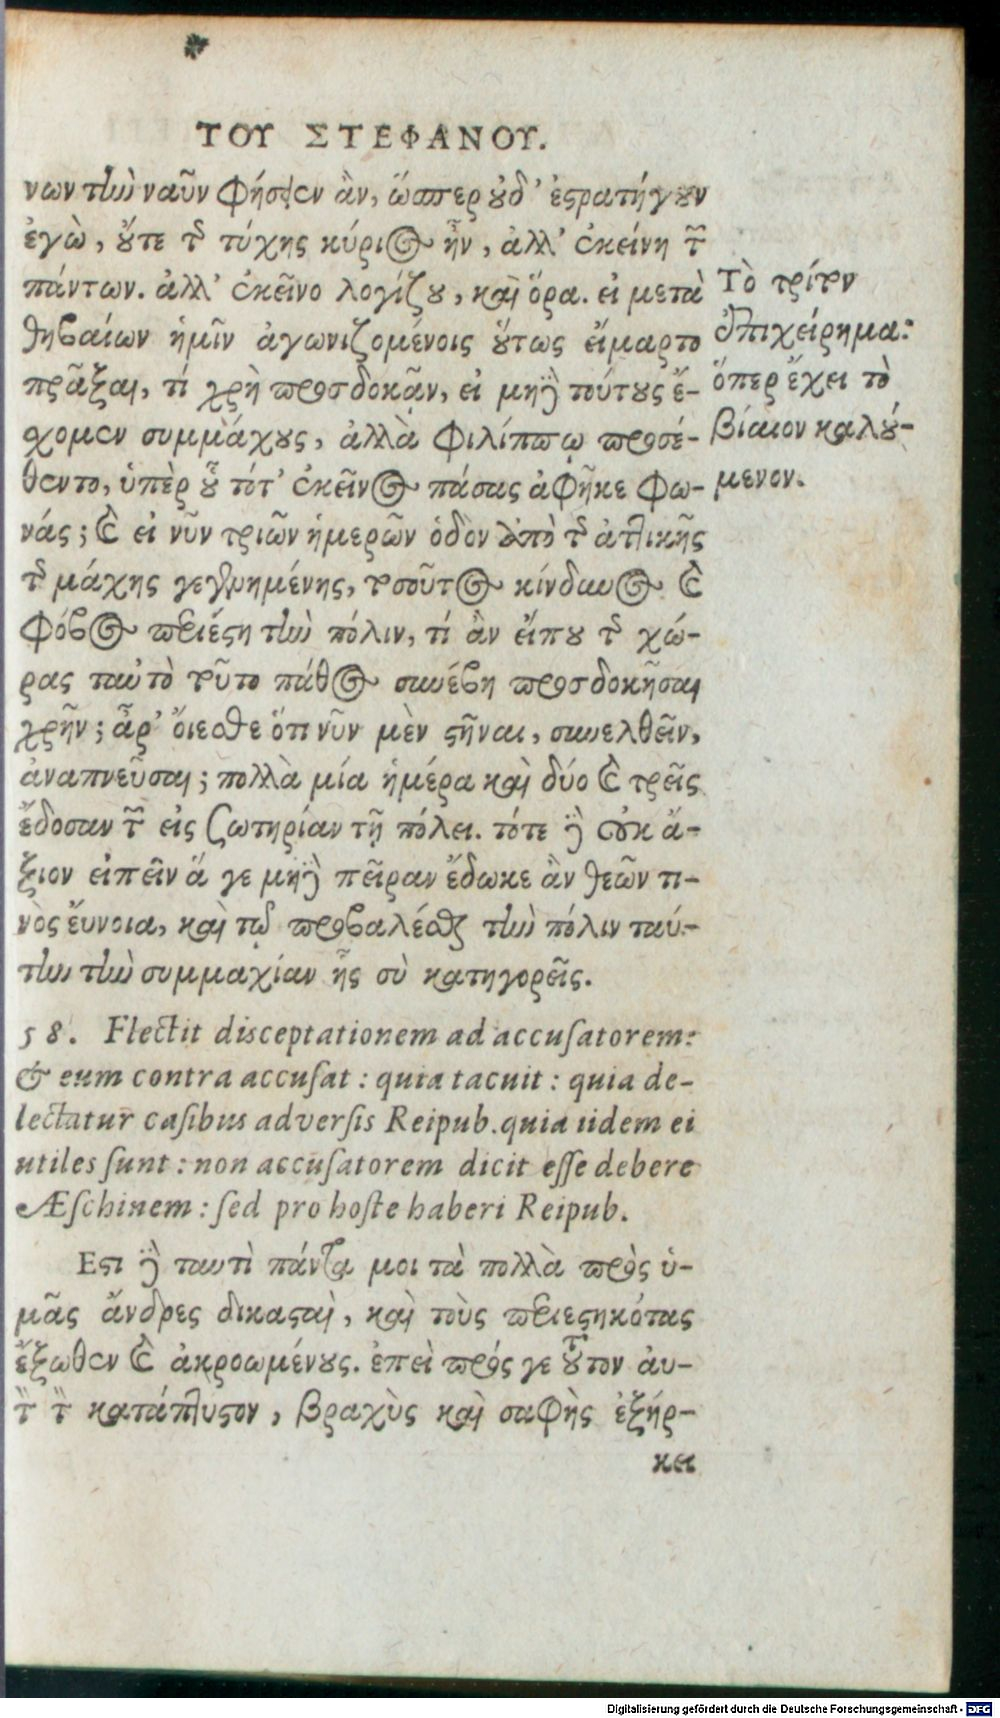 ΤΟΥ ΣΤΕΦΑΝΟΥ.
νων τὴν ναῦν φήσειεν ἂν, ὥσπερ οὐδ' ἐστρατήγουν
ἐγὼ, οὔτε τῆς τύχης κύριος ἦν, ἀλλ' ἐκείνη τῶν
πάντων. ἀλλ' ἐκεῖνο λογίζου, καὶ ὅρα. εἰ μετὰ
θηβαίων ἡμῖν ἀγωνιζομένοις οὕτως εἵμαρτο
πρᾶξαι, τί χρὴ προσδοκᾷν, εἰ μηδὲ τούτους ἔ-
σχομεν συμμάχους, ἀλλὰ Φιλίππῳ προσέ-
θεντο, ὑπὲρ οὗ τότ' ἐκεῖνος πάσας ἀφῆκε φω-
νάς; καὶ εἰ νῦν τριῶν ἡμερῶν ὁδὸν ἀπὸ τῆς ἀττικῆς
τῆς μάχης γεγενημένης, τοσοῦτος κίνδυνος καὶ
φόβος περιέστη τὴν πόλιν, τί ἂν εἴπου τῆς χώ-
ρας ταὐτὸ τοῦτο πάθος συνέβη προσδοκῆσαι
χρῆν; ἆρ' οἴεσθε ὅτι νῦν μὲν στῆναι, συνελθεῖν,
ἀναπνεῦσαι; πολλὰ μία ἡμέρα καὶ δύο καὶ τρεῖς
ἔδοσαν τῶν εἰς σωτηρίαν τῇ πόλει. τότε δὲ οὐκ ἄ-
ξιον εἰπεῖν ἅ γε μηδὲ πεῖραν ἔδωκε ἂν θεῶν τι-
νὸς εὔνοια, καὶ τῷ προβαλέσθαι τὴν πόλιν ταύ-
την τὴν συμμαχίαν ἧς σὺ κατηγορεῖς.
Τὸ τρίτον
ἐπιχείρημα:
ὅπερ ἔχει τὸ
βίαιον καλού-
μενον.
58. Flectit disceptationem ad accusatorem:
& eum contra accusat: quia tacuit: quia de-
lectatur casibus adversis Reipub. quia iidem ei
utiles sunt: non accusatorem dicit esse debere
Æschinem: sed pro hoste haberi Reipub.
Εστι δὲ ταυτὶ πάντα μοι τὰ πολλὰ πρὸς ὑ-
μᾶς ἄνδρες δικασταὶ, καὶ τοὺς περιεστηκότας
ἔξωθεν καὶ ἀκροωμένους. ἐπεὶ πρός γε τοῦτον αὐ-
τὸν τὸν κατάπτυστον, βραχὺς καὶ σαφὴς ἐξήρ-
κει
Digitalisierung gefördert durch die Deutsche Forschungsgemeinschaft - DFG